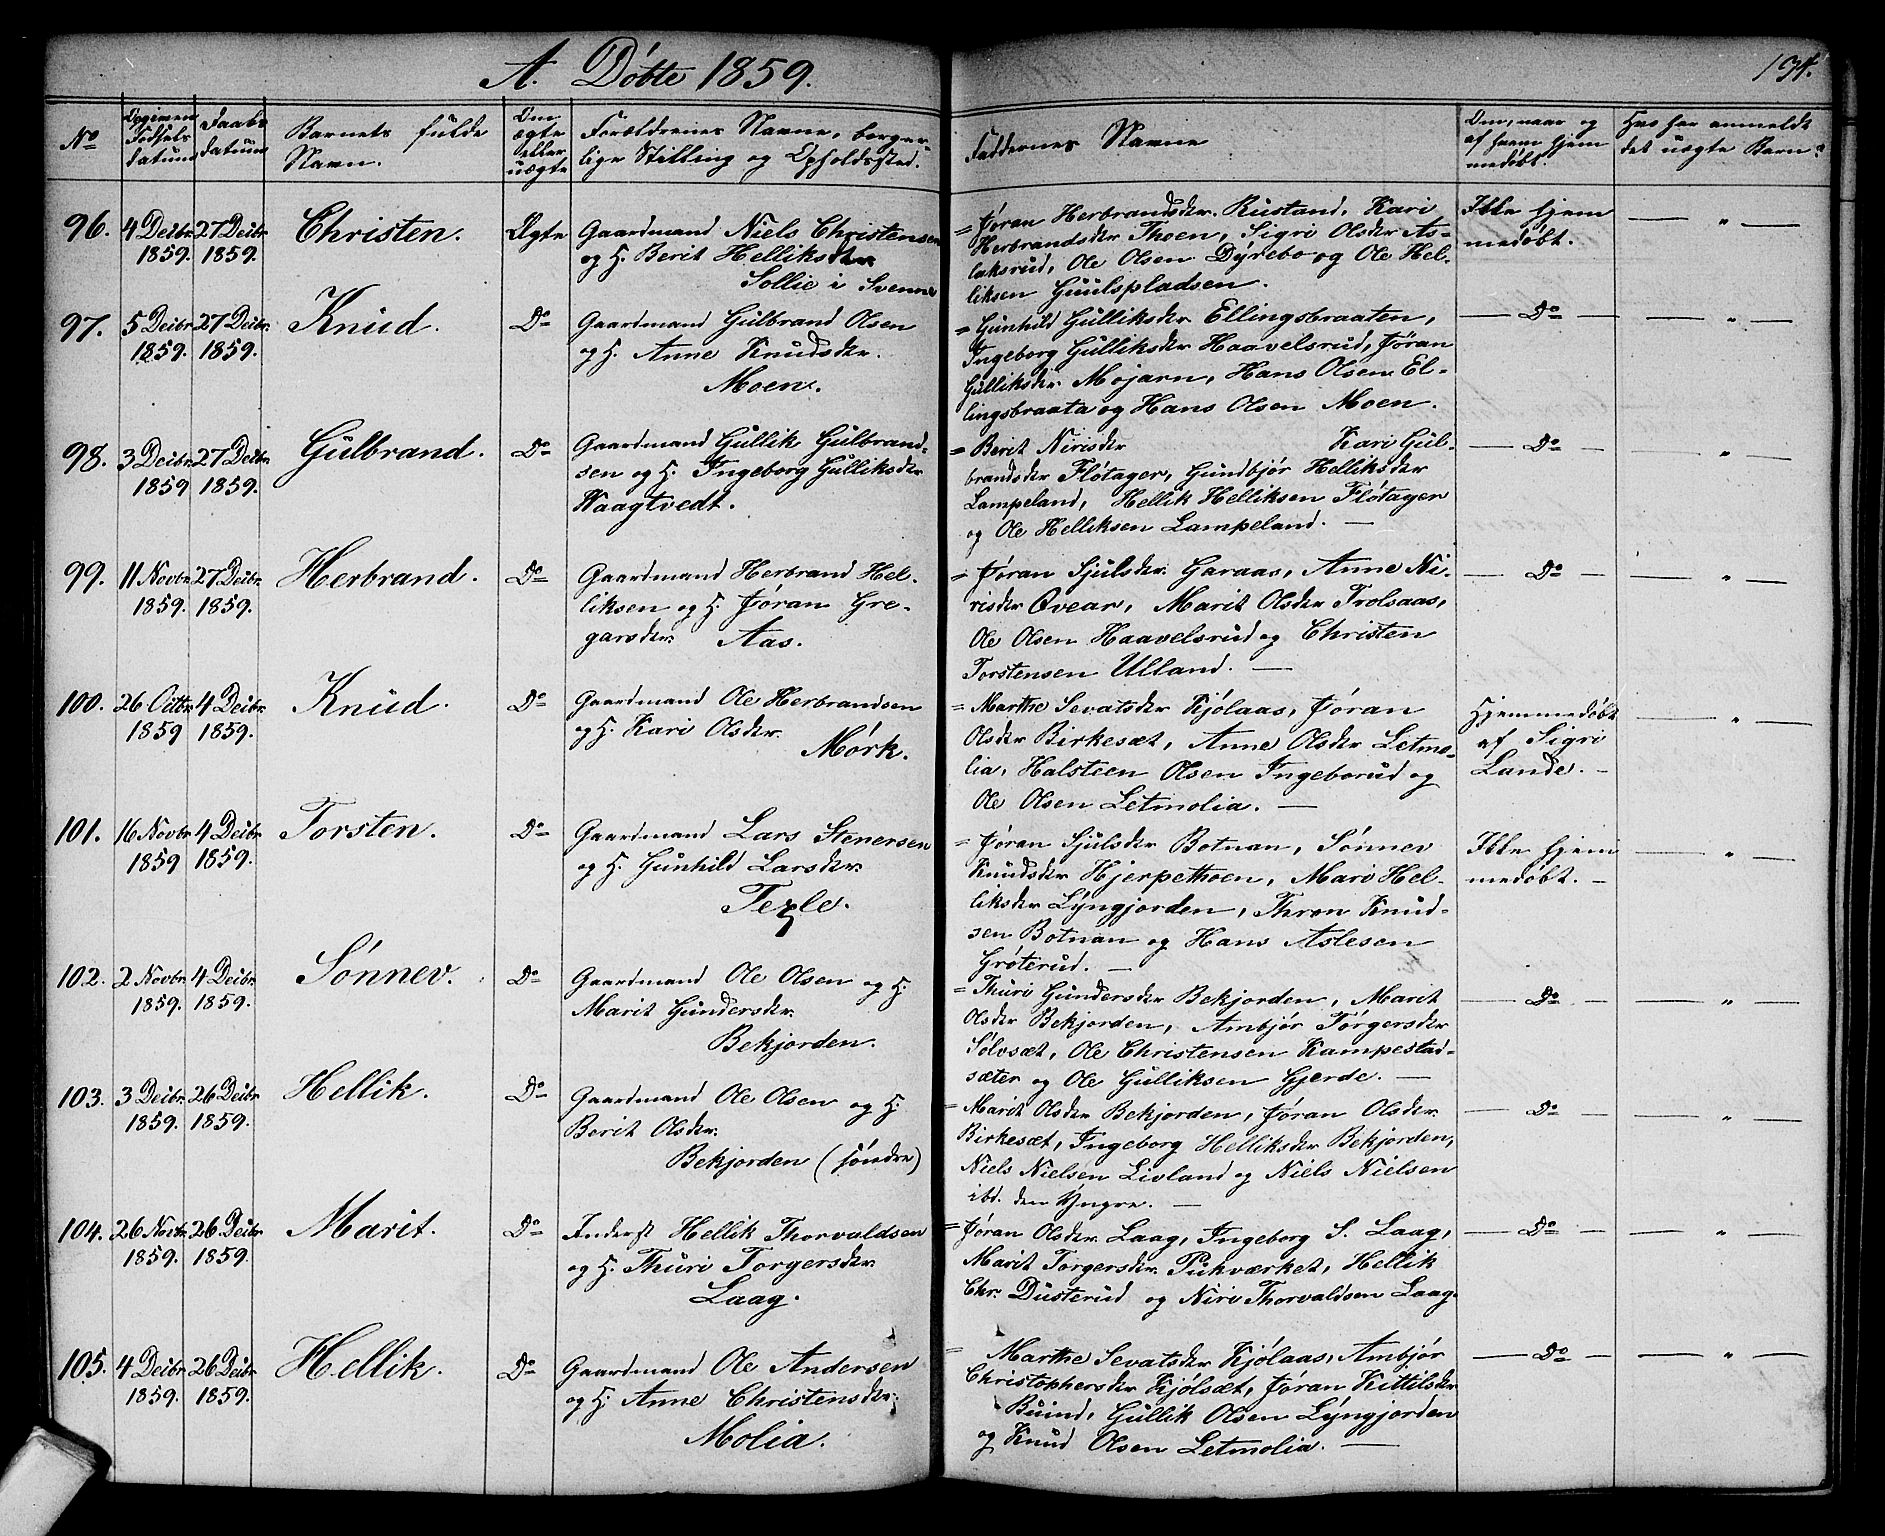 A. Døbte 1859.
194.
No
Opgiven Fødsels datum
Daabs datum
Barnets fulde Navn.
Om ægte eller uægte
Forældrenes Navne, borgerlige Stilling og Opholdssted.
Faddernes Navne
Om, naar og af hvem hjemmedøbt.
Hvo har anmeldt det uægte Barn?
96. 4 Decbr. 27 Decbr. Christen. Ægte Gaardmand Niels Christensen
1859. 1859. og H. Berit Helliksdtr.
Sollie i Svenne
= Jøran Herbrandsdtr. Rustand, Kari
Herbrandsdtr Thoen, Sigri Olsdtr As-
laksrud, Ole Olsen Dyrebo og Ole Hel-
liksen Guulspladsen.
Ikke hjem
medøbt.
— " —
97. 5 Decbr. 27 Decbr. Knud. Do Gaardmand Gulbrand Olsen
1859. 1859. og H. Anne Knudsdtr.
Moen.
= Gunhild Gulliksdtr Ellingsbraaten,
Ingeborg Gulliksdtr Haavelsrud, Jøran
Gulliksdtr Mojarn, Hans Olsen El-
lingsbraata og Hans Olsen Moen.
— Do —
— " —
98. 3 Decbr. 27 Decbr. Gulbrand. Do Gaardmand Gullik Gulbrand-
1859 1859. sen og H. Ingeborg Gulliksdtr
Waagtvedt.
= Berit Nirisdtr Kari Gul-
brandsdtr Flotager, Gundbjør Helliksdtr
Lampeland, Hellik Helliksen Flotager
og Ole Helliksen Lampeland. —
— Do —
— " —
99. 11 Novbr. 27 Decbr. Herbrand. Do Gaardmand Herbrand Hel-
1859. 1859. liksen og H. Jøran Gre-
garsdtr. Aas.
= Jøran Sjulsdtr. Garaas, Anne Ni-
risdtr Qvear, Marit Olsdtr Trolsaas,
Ole Olsen Haavelsrud og Christen
Torstensen Ulland. —
— Do —
— " —
100. 26 Octbr. 4 Decbr. Knud. Do Gaardmand Ole Herbrandsen
1859 1859. og H. Kari Olsdtr.
Mørk.
= Marthe Sevatsdtr Kjølaas, Jøran
Olsdtr Birkesæt, Anne Olsdtr Letmo-
lia, Halsteen Olsen Ingeborud og
Ole Olsen Letmolia. —
Hjemmedøbt
af Sigri
Lande. -
— " —
101. 16 Novbr. 4 Decbr. Torsten. Do Gaardmand Lars Stenersen
1859 1859. og H. Gunhild Larsdtr.
= Jøran Sjulsdtr Botnan, Sønnev
Knudsdtr Hjerpethoen, Mari Hel-
liksdtr Lyngjorden, Thron Knud-
sen Botnan og Hans Aslesen
Grøterud. —
Ikke hjem
medøbt. -
— " —
102. 2 Novbr. 4 Decbr. Sønnev. Do Gaardmand Ole Olsen og H.
1859. 1859. Marit Gundersdtr.
Bekjorden.
= Thuri Gundersdtr Bekjorden, Marit
Olsdtr Bekjorden, Ambjør Torgersdtr
Sølvsæt, Ole Christensen Kampestad-
sæter og Ole Gulliksen Gjerde. —
— Do —
— " —
103. 3 Decbr. 26 Decbr. Hellik. Do Gaardmand Ole Olsen og H.
1859. 1859. Berit Olsdtr.
Bekjorden (søndre)
= Marit Olsdtr Bekjorden, Jøran Olsdtr.
Birkesæt, Ingeborg Helliksdtr Bekjorden,
Niels Nielsen Livland og Niels Nielsen
ibd. den Yngre. —
— Do —
— " —
104. 26 Novbr. 26 Decbr. Marit. Do Inderst Hellik Thorvaldsen
1859. 1859. og H. Thuri Torgersdtr.
Laag.
= Jøran Olsdtr. Laag, Ingeborg S. Laag,
Marit Torgersdtr. Pukværket, Hellik
Chr. Dusterud og Niri Thorvaldsen Laag.
— Do —
— " —
105. 4 Decbr. 26 Decbr. Hellik. Do Gaardmand Ole Andersen
1859. 1859. og H. Anne Christensdtr.
Molia.
= Marthe Sevatsdtr Kjølaas, Ambjør
Christophersdtr Kjølsæt, Jøran Kittilsdtr
Buind, Gullik Olsen Lyngjorden
og Knud Olsen Letmolia. —
— Do —
— " —